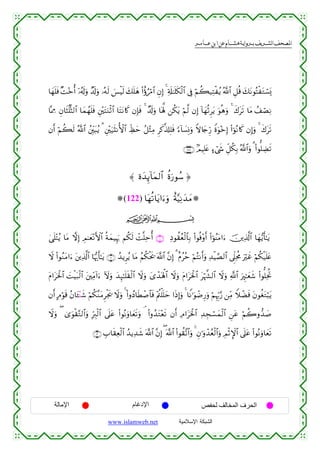 المصحف الشريف برواية هشام عن ابن عامر
يَسْتَفْتُونَكَ قُلِ ٱللَّهُ يُفْتِيكُمْ فِى ٱلْكَلَٰلَةِ ۚ إِنِ ٱمْرُؤٌا۟ هَلَكَ لَيْسَ لَهُۥ وَلَدٌ وَلَهُۥٓ أُخْتٌ فَلَهَا
نِصْفُ مَا تَرَكَ ۚ وَهُوَ يَرِثُهَآ إِن لَّمْ يَكُن لَّهَا وَلَدٌ ۚ فَإِن كَانَتَا ٱثْنَتَيْنِ فَلَهُمَا ٱلثُّلُثَانِ مِمَّا
تَرَكَ ۚ وَإِن كَانُوٓا۟ إِخْوَةً رِّجَالًا وَنِسَآءً فَلِلذَّكَرِ مِثْلُ حَظِّ ٱلْأُنثَيَيْنِ ۗ يُبَيِّنُ ٱللَّهُ لَكُمْ أَن
تَضِلُّوا۟ ۗ وَٱللَّهُ بِكُلِّ شَىْءٍ عَلِيمٌۢ
﴿ سُورَةُ ٱلْمَآئِدَةِ ﴾
مَدَنِيَّةٌ وَءَايَاتُهَا (122)
بِسْمِ ٱللَّهِ ٱلرَّحْمَٰنِ ٱلرَّحِيمِ
يَٰٓأَيُّهَا ٱلَّذِينَ ءَامَنُوٓا۟ أَوْفُوا۟ بِٱلْعُقُودِ أُحِلَّتْ لَكُم بَهِيمَةُ ٱلْأَنْعَٰمِ إِلَّا مَا يُتْلَىٰ
عَلَيْكُمْ غَيْرَ مُحِلِّى ٱلصَّيْدِ وَأَنتُمْ حُرُمٌ ۗ إِنَّ ٱللَّهَ يَحْكُمُ مَا يُرِيدُ يَٰٓأَيُّهَا ٱلَّذِينَ ءَامَنُوا۟ لَا
تُحِلُّوا۟ شَعَٰٓئِرَ ٱللَّهِ وَلَا ٱلشَّهْرَ ٱلْحَرَامَ وَلَا ٱلْهَدْىَ وَلَا ٱلْقَلَٰٓئِدَ وَلَآ ءَآمِّينَ ٱلْبَيْتَ ٱلْحَرَامَ
يَبْتَغُونَ فَضْلًا مِّن رَّبِّهِمْ وَرِضْوَٰنًا ۚ وَإِذَا حَلَلْتُمْ فَٱصْطَادُوا۟ ۚ وَلَا يَجْرِمَنَّكُمْ شَنَـَٔانُ قَوْمٍ أَن
صَدُّوكُمْ عَنِ ٱلْمَسْجِدِ ٱلْحَرَامِ أَن تَعْتَدُوا۟ ۘ وَتَعَاوَنُوا۟ عَلَى ٱلْبِرِّ وَٱلتَّقْوَىٰ ۖ وَلَا
تَعَاوَنُوا۟ عَلَى ٱلْإِثْمِ وَٱلْعُدْوَٰنِ ۚ وَٱتَّقُوا۟ ٱللَّهَ ۖ إِنَّ ٱللَّهَ شَدِيدُ ٱلْعِقَابِ
الحرف المخالف لحفص الإدغام الإمالة
الشبكة الإسلامية www.islamweb.net